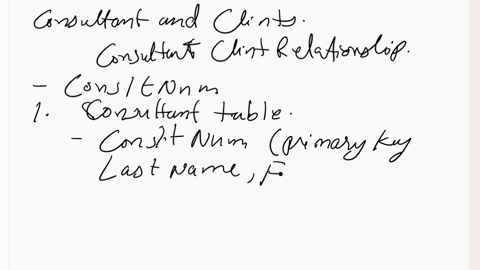 Consultant and Clints.
Consultant Clint Relationship.
- ConsltNum
1. Consultant table.
- Conslt Num (primary key
Last Name, F